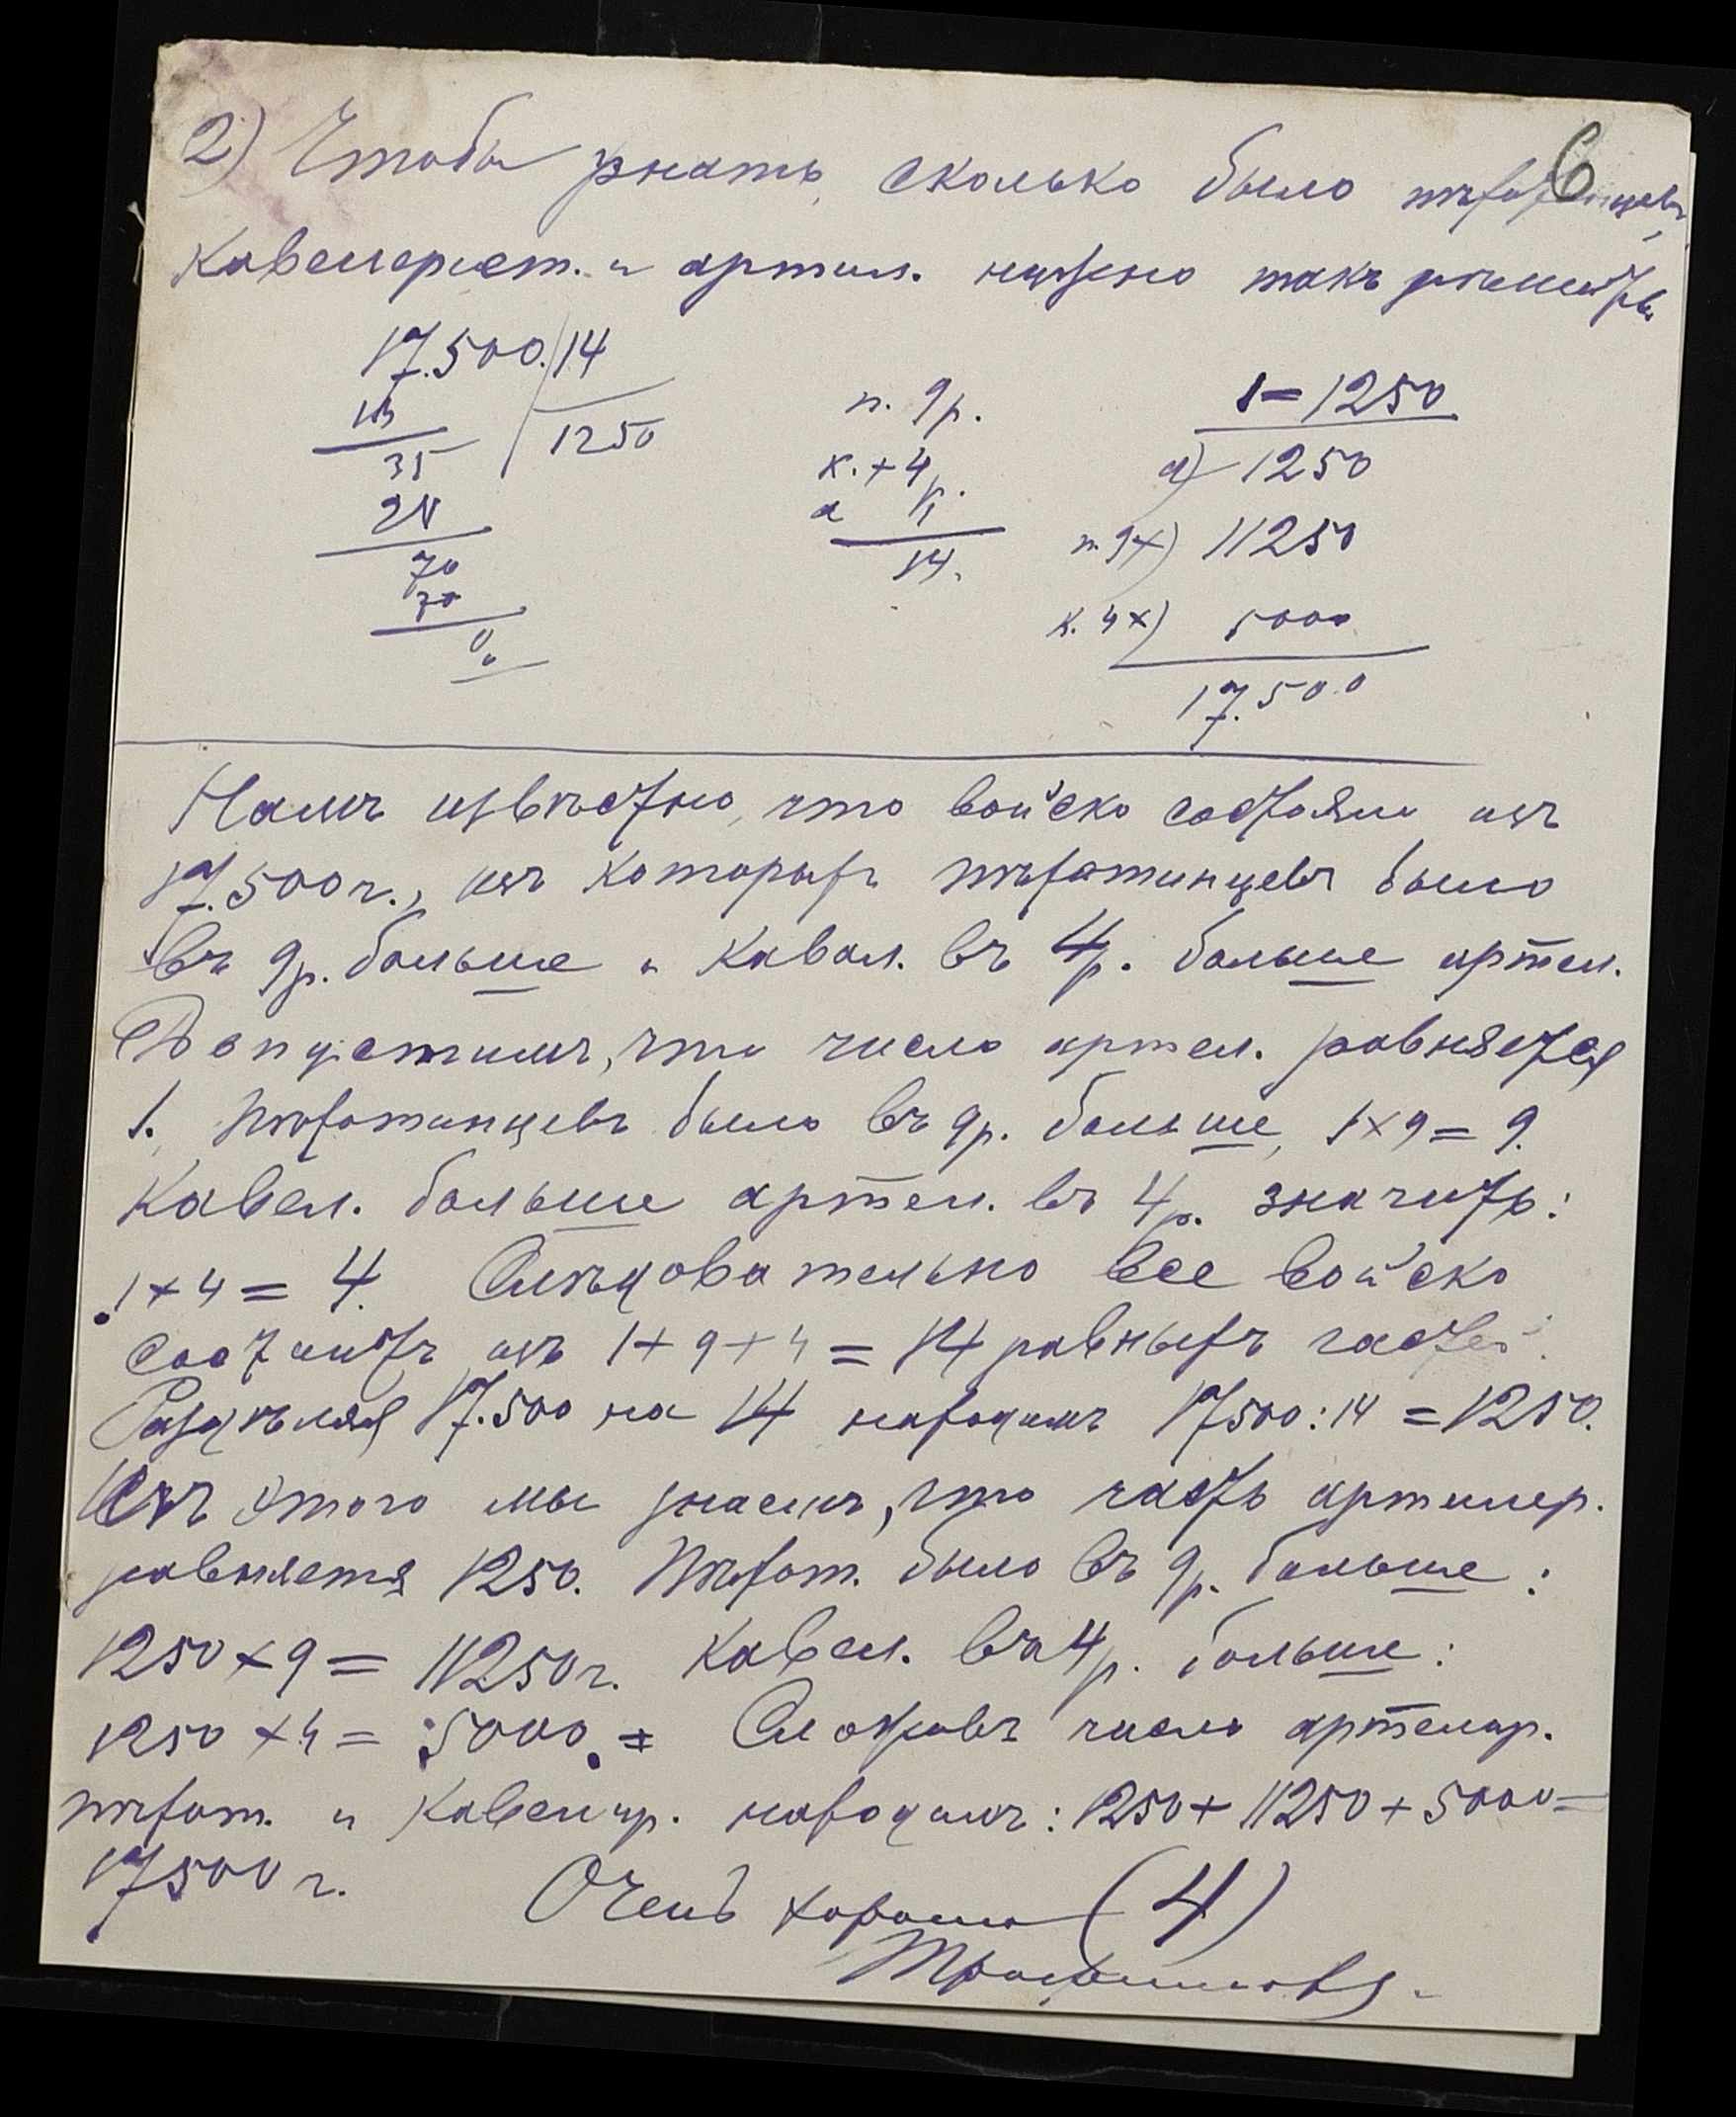 6
2) Чтобы узнать, сколько было пѣхотинцевъ,
кавелерист. и артил. нужно такъ рѣшить
17.500. 14
14 1250
35
28
70
70
0
п. 9р.
к. + 4р.
а 1
14.
1 = 1250
а) 1250
п. 9×) 11250
к. 4×) 5000
17.500
Намъ извѣстно, что войско состояло изъ
17.500 ч., изъ которыхъ пѣхотинцевъ было
въ 9р. больше и кавал. въ 4р. больше артел.
Допустимъ, что число артел. равняется
1. Пѣхотинцевъ было въ 9р. больше, 1×9 = 9.
Кавел. больше артел. въ 4р. значитъ:
1 × 4 = 4. Слѣдовательно все войско
состоитъ изъ 1 + 9 + 4 = 14 равныхъ частей.
Раздѣляя 17.500 на 14 находимъ 17500 : 14 = 1250.
Изъ этого мы узнаемъ, что часть артилер.
равняется 1250. Пѣхот. было въ 9р. больше:
1250 × 9 = 11250 ч. Кавел. въ 4р. больше:
1250 × 4 = 5000. = Сложивъ число артелир.
пѣхот. и кавелир. находимъ: 1250 + 11250 + 5000 =
17500 ч. Очень хорошо (4)